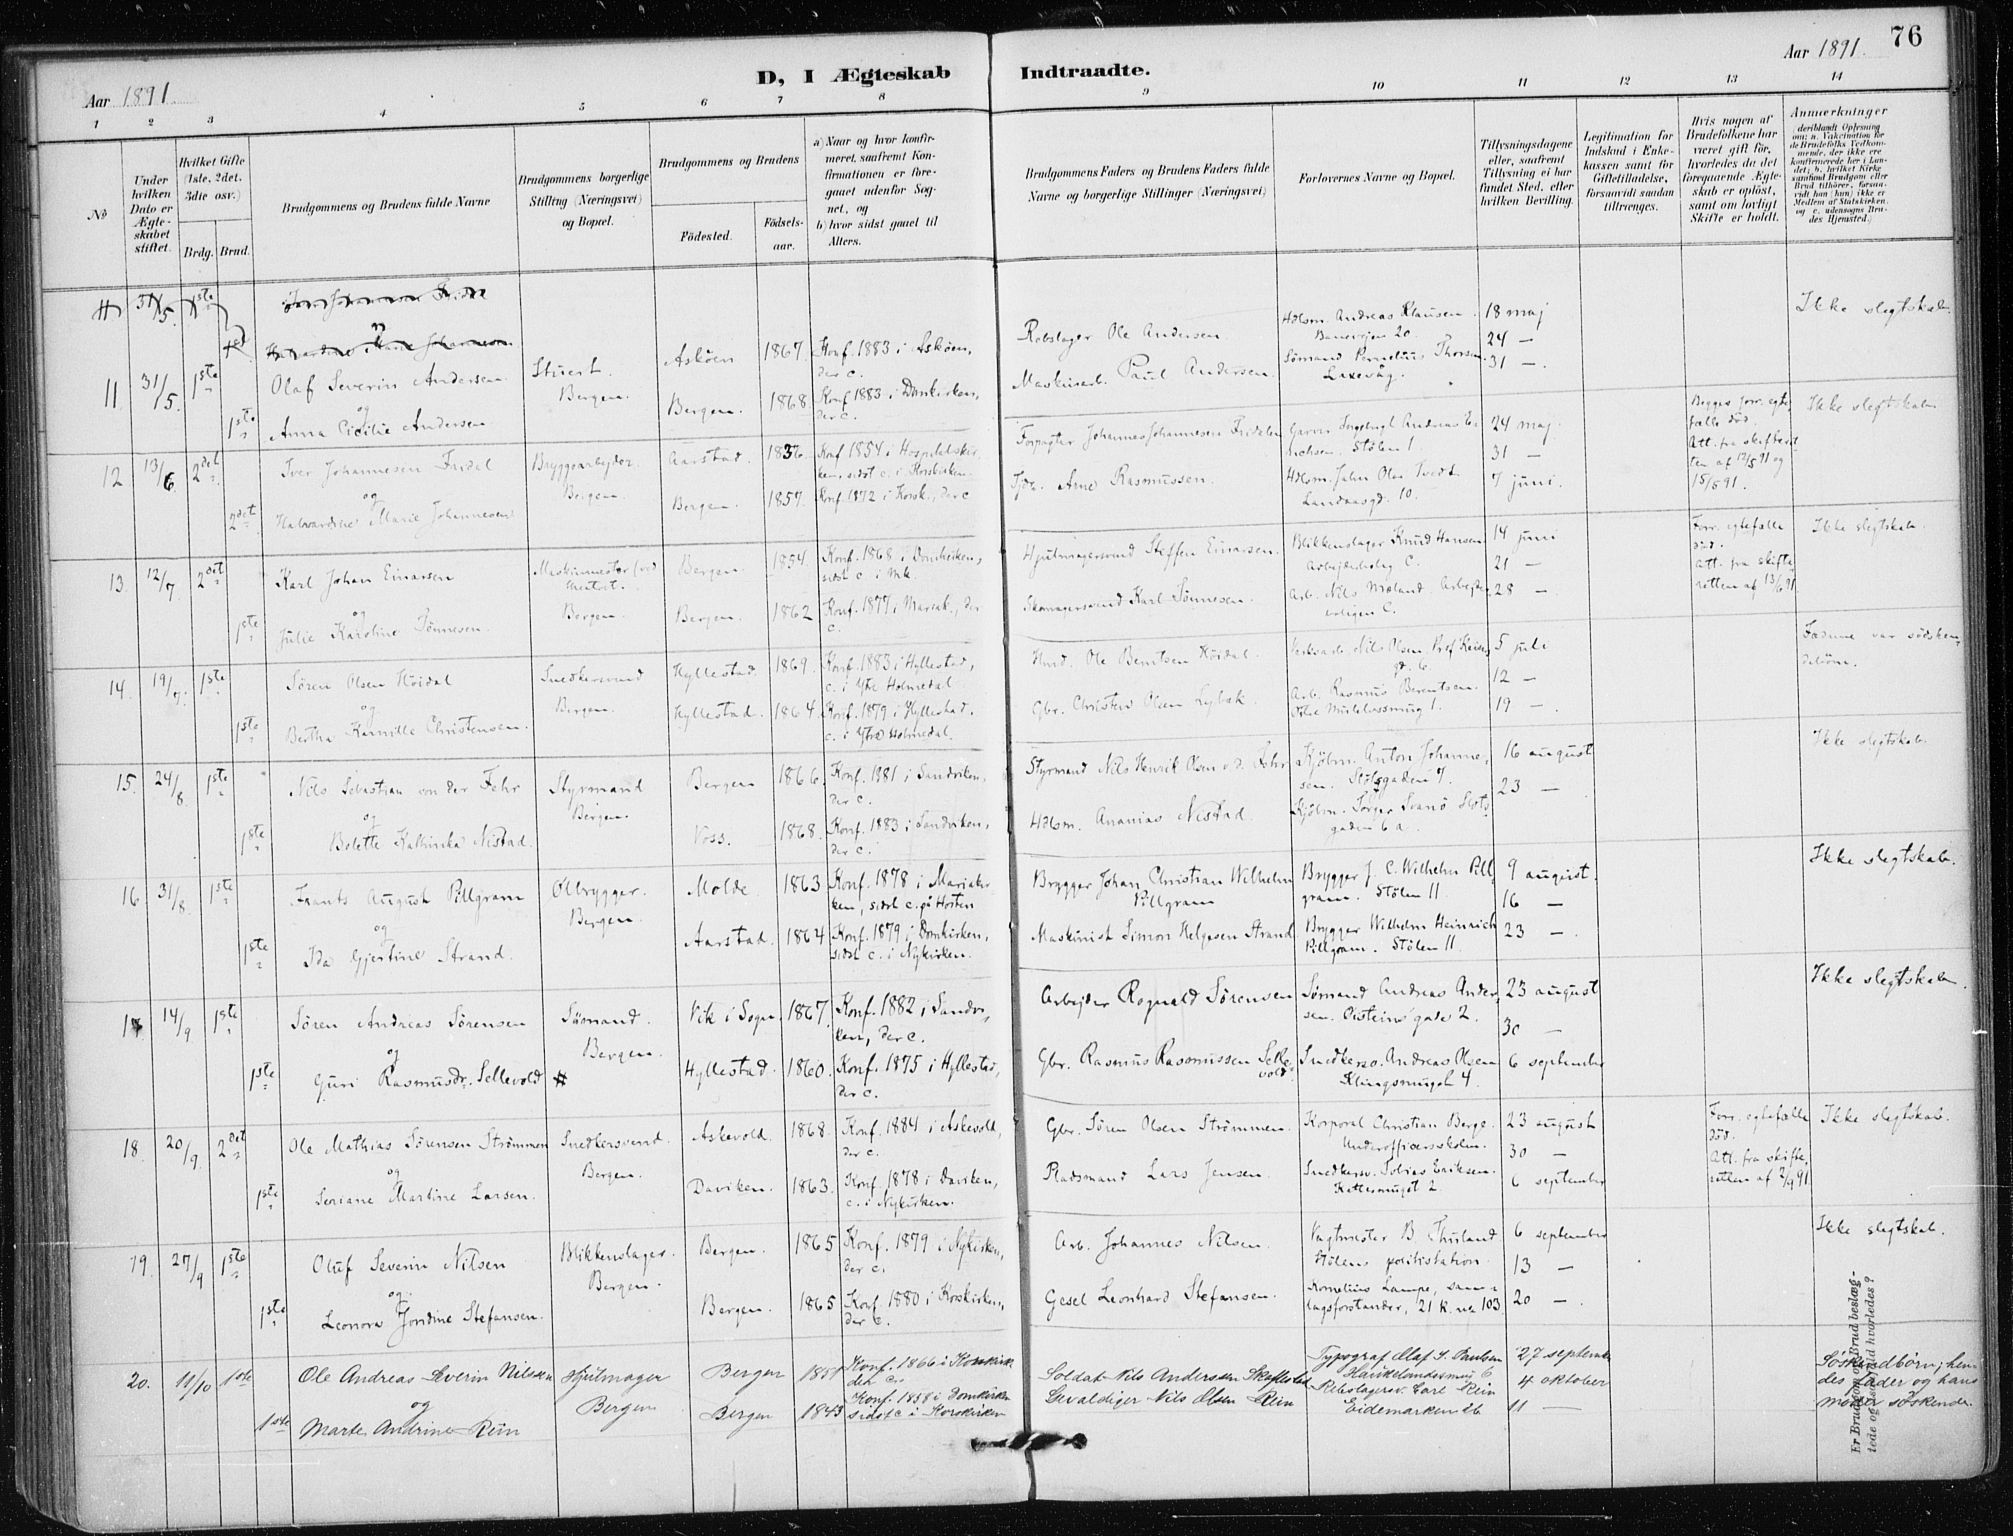 76
Aar 1891.
D, I Ægteskab Indtraadte.
Aar 1891.
1 2 3 4 5 6 7 8 9 10 11 12 13 14
No
Under hvilken Dato er Ægteskabet stiftet.
Hvilket Gifte (1ste, 2det, 3die osv.)
Brdg. Brud.
Brudgommens og Brudens fulde Navne
Brudgommens borgerlige Stilling (Næringsvei) og Bopæl.
Brudgommens og Brudens
Fødested.
Fødselsaar.
a) Naar og hvor konfirmeret, saafremt Konfirmationen er foregaaet udenfor Sognet, og
b) hvor sidst gaaet til Alters.
Brudgommens Faders og Brudens Faders fulde Navne og borgerlige Stillinger (Næringsvei)
Forlovernes Navne og Bopæl.
Tillysningsdagene eller, saafremt Tillysning ei har fundet Sted, efter hvilken Bevilling.
Legitimation for Indskud i Enkekassen samt for Giftetilladelse, forsaavidt saadan tiltrænges.
Hvis nogen af Brudefolkene har været gift før, hvorledes da det foregaaende Ægteskab er opløst, samt om lovligt Skifte er holdt.
Anmærkninger
deriblandt Oplysning om: a. Vakcination for de Brudefolks Vedkommende, der ikke ere konfirmerede her i Landet; b. hvilket Kirkesamfund Brudgom eller Brud tilhører, forsaavidt han (hun) ikke er Medlem af Statskirken, og c. udensogns Brudes Hjemsted.)
11 31/5. 1ste
Olaf Severin Andersen
og
1ste Anna Cicilie Andersen
Stuert.
Bergen.
Askøen 1867. Konf. 1883 i Askøen, der c.
Bergen. 1868. Konf. 1883 i Domkirken, der c.
Rebslager Ole Andersen.
Maskinarb. Paul Andersen.
Hdlsm. Andreas Klausen.
Sømand Thorsen
Laxevåg.
18 maj
24 —
31 —
Ikke slegtskab.
12 13/6. 2det
Iver Johannesen Fridal
og
2det Halvardine Marie Johannesen
Bryggearbejder
Bergen.
Aarstad. 1836. Konf. 1854 i Hospitalskirken, sidst c. i Korskirken.
Bergen. 1857. Konf. 1872 i Korsk., der c
Forpagter Johannes Johannesen Fridalen
Arne Rasmussen.
Stølen 1
Hdlsm. John Olsen Tvedt
Landaasgd. 10.
24 maj.
31 —
7 juni.
Begges forr. egtefælle død.
Att. fra skifteretten af 12/5 91 og 15/5 91.
Ikke slegtskab
13. 12/7. 2det
Karl Johan Einarsen
og
1ste Julie Karoline Tønnesen.
Maskinmester (ved
Bergen.
Bergen. 1854. Konf. 1868 i Domkirken, sidst c. i Mk.
Bergen. 1862 Konf. 1877 i Mariak., der c.
Hjulmagersvend Steffen Einarsen.
Skomagersvend Karl Tønnesen.
Blikkenslager Knud Hansen
Arbejderbolig C.
Arb. Nils Moland. Arbejderboligen C.
14 juni
21 —
28 —
Forr. egtefælle død.
Att. fra skifteretten af 13/6 91
Ikke slegtskab.
14. 19/7. 1ste
Søren Olsen Høidal
og
1ste Bertha Kamille Christensen.
Snedkersvend
Bergen.
Hyllestad. 1869. Konf. 1883 i Hyllestad, c. i Ytre Holmedal
Hyllestad. 1864. Konf. 1879 i Hyllestad. c. i Ytre Holmedal.
Hmd. Ole Berntsen Høidal.
Gbr. Christen Olsen
Nils Olsen.
Arb. Rasmus Berentsen.
5 juli
12 —
19 —
Fædrene var sødskendebørn.
15. 24/8. 1ste
Nils Sebastian von der Fehr
og
1ste Bolette Kathinka Nistad.
Styrmand
Bergen.
Bergen 1866. Konf. 1881 i Sandviken, der c.
Voss. 1868. Konf. 1883 i Sandviken, der c.
Styrmand Nils Henrik Olsen v. d. Fehr
Hdlsm. Ananias Nistad.
Kjølm. Anton Johannesen. Stølsgaden 7.
Kjølm. Torger Svanø Slotsgaden 6 a.
16 august
23 —
Ikke slegtskab.
16. 31/8. 1ste
Frants August Pillgram
og
1ste Ida Gjertine Strand.
Ølbrygger.
Bergen.
Molde. 1863 Konf. 1878 i Mariakirken, sidst c. på Horten
Aarstad. 1864 Konf. 1879 i Domkirken, sidst c. i Nykirken.
Brygger Johan Christian Wilhelm Pillgram
Maskinist Simon Helgesen Strand
Brygger J. C. Wilhelm Pillgram. Stølen 11.
Brygger Wilhelm Heinrich Pillgram. Stølen 11.
9 august.
16 —
23 —
Ikke slegtskab.
17 14/9 1ste
Søren Andreas Sørensen
og
1ste Guri Rasmusdr. Sellevold
Sømand.
Bergen.
Vik i Sogn. 1867. Konf. 1882 i Sandviken, der c.
Hyllestad. 1860. Konf. 1875 i Hyllestad, der c.
Arbejder Rognald Sørensen
Gbr. Rasmus Rasmussen Sellevold.
Sømand Andreas Andersen. Øisteins gade 2.
Snedkersv. Andreas Olsen
Klingsmuget 4.
23 august
30 —
6 september
Ikke slegtskab.
18. 20/9. 2det
Ole Mathias Sørensen Strømmen
og
1ste Seriane Martine Larsen.
Snedkersvend.
Bergen.
Askevold. 1868. Konf. 1884 i Askevold, der c.
Daviken. 1863. Konf. 1878 i Daviken, c. i Nykirken.
Gbr. Søren Olsen Strømmen.
Pladsmand Lars Jensen.
Korporal Christian Berge.
Underofficersskolen.
Snedkersv. Tobias Eriksen.
2.
23 august
30 —
6 september
Forr. egtefælle død.
Att. fra skifteretten af 2/9 91
Ikke slegtskab.
19. 27/9 1ste
Oluf Severin Nilsen
og
1ste Leonora Jordine Stefansen.
Blikkenslager.
Bergen.
Bergen. 1865 Konf. 1879 i Nykirken, der c.
Bergen. 1865 Konf. 1880 i Korskirken, der c.
Arb. Johannes Nilsen
Gesel Leonhard Stefansen.
Vagtmester B. Thuland
Stølens politistation.
Kornelius Lampe, samlagsforstander, 21 R. no 103
6 september
13 —
20 —
Ikke slegtskab.
20. 11/10 1ste
Ole Andreas Severin Nilssen
og
1ste Marte Andrine Rein
Hjulmager
Bergen
Bergen 1851 Konf. 1866 i Korskirk. der c.
Bergen 1843 Konf. 1858 i Domkirken sidst c. i Korskirken
Soldat Nils Anderssen
Gevaldiger Nils Olsen Rein
Typograf Olaf S. Paulsen
Rebslagersv. Carl Rein
Eidemarken 26
27 september
4 oktober
11 —
Søskendbørn; hendes fader og hans moder søskende.
Er Brudgom og Brud beslægtede og i saa Fald hvorledes?